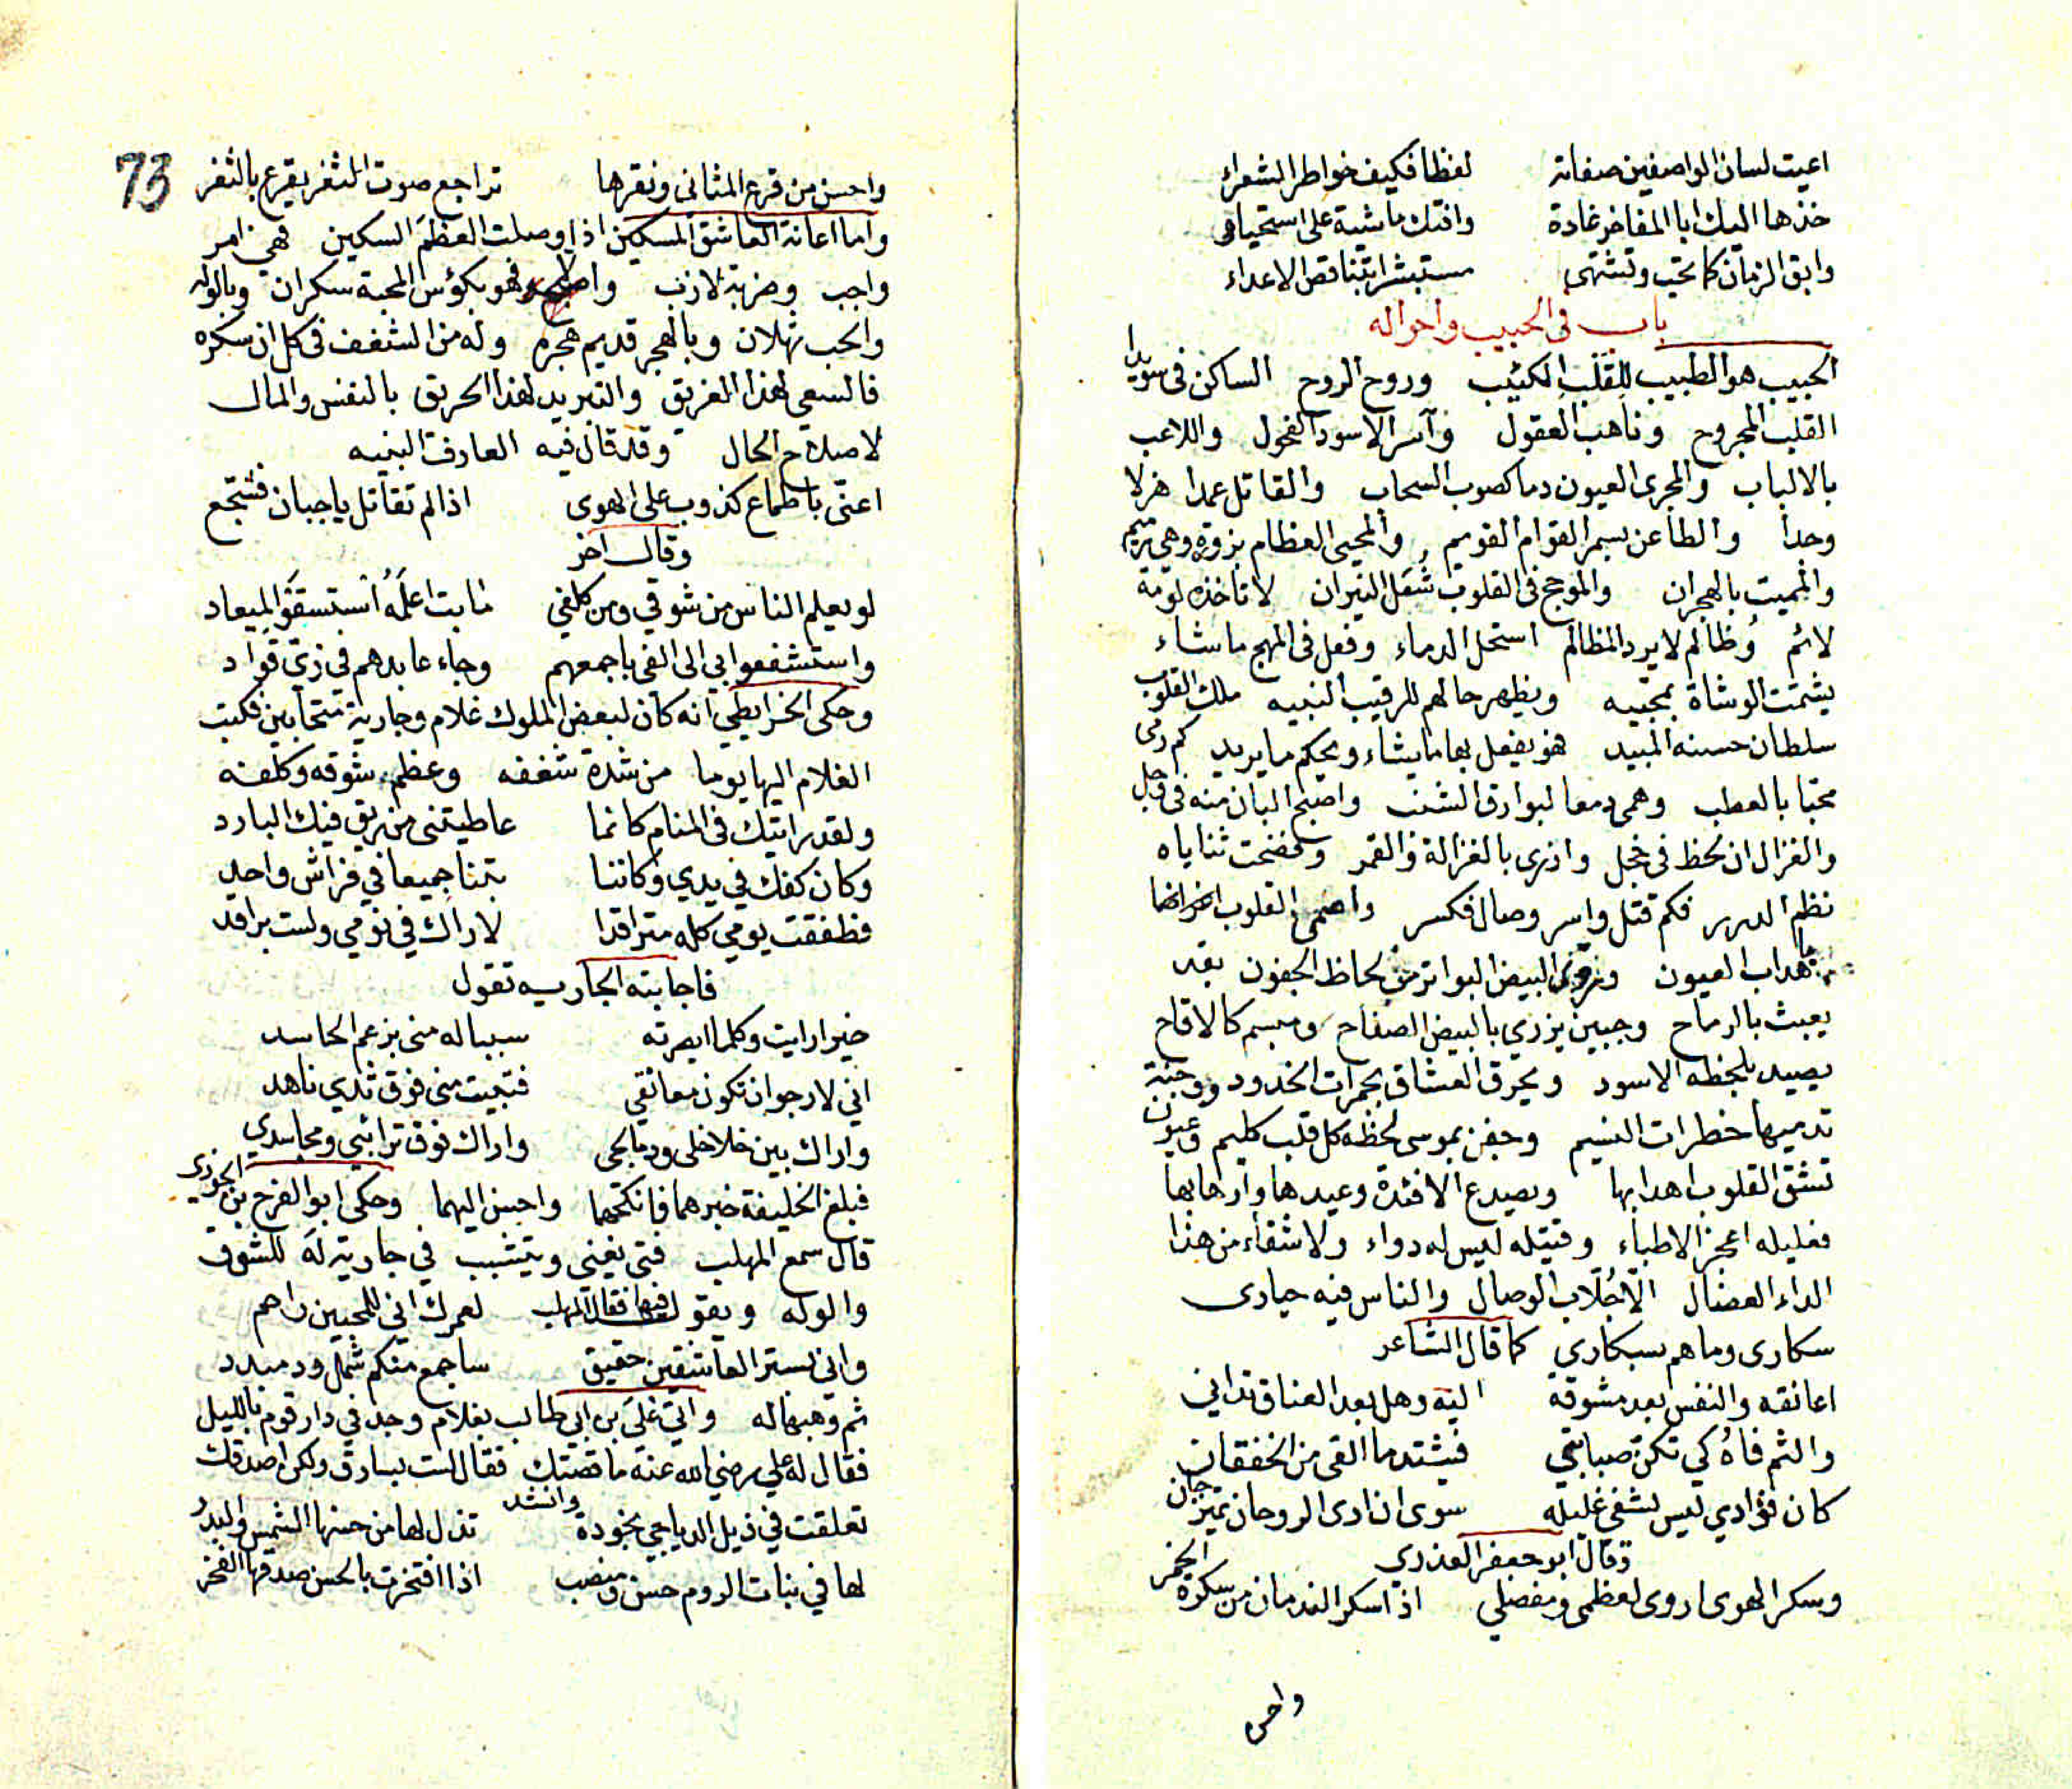 اعيت لسان الواصفين صفاته لفظا فكيف خواطر الشعراء
خذها اليك ابا المفاخر غادة وافتك ماشية على استحياء
وابق الزمان كما تحب وتشتهى مستبشرا بتناقص الاعداء
باب في الحبيب واحواله
الحبيب هو الطبيب للقلب الكئيب وروح الروح الساكن فى سويدا
القلب المجروح وناهب العقول وآسر الاسود الفحول واللاعب
بالالباب والمجرى العيون دما كصوب السحاب والقاتل عمدا هزلا
وجدا والطاعن بسمر القوام القويم والمحيى العظام بزورة وهي رميم
والمميت بالهجران والموجج فى القلوب شعل النيران لا تاخذه لومة
لائم وظالم لا يرد المظالم استحل الدماء وفعل فى المهج ما شاء
يشمت الوشاة بمحبيه ويظهر حالهم للرقيب النبيه ملك القلوب
سلطان حسنه المبيد فهو يفعل بها ما يشاء ويحكم ما يريد كم رمى
محبا بالعطب وهمى دمعا لبوارق الشنب واصبح البان منه فى وجل
والغزال ان لحظ فى خجل وازرى بالغزالة والقمر وفضحت ثناياه
نظم الدرر فكم قتل واسر وصال فكسر واصمى القلوب
باهداب العيون البيض البواتر من لحاظ الجفون بقد
يعبث بالرماح وجبين يزري بالبيض الصفاح ومبسم كالاقاح
يصيد بلحظه الاسود ويحرق العشاق بجمرات الخدود ووجنة
تدميها خطرات النسيم وجفن بموسى لحظه كل قلب كليم وعيون
تشق القلوب اهدابها ويصدع الافئدة وعيدها وارهابها
فعليله اعجز الاطباء وقتيله ليس له دواء ولا شفاء من هذا
الداء العضال الا جلاب الوصال والناس فيه حيارى
سكارى وما هم بسكارى كما قال الشاعر
اعانقه والنفس بعد مشوقة اليه وهل بعد العناق تدانى
والثم فاه كي تكن صبابتي فيشتد ما القى من الخفقان
كان فؤادي ليس يشفى غليله سوى ان ارى الروحان يمتزجان
وقال ابو جعفر العذري
وسكر الهوى اروى لعظمى ومفصلي اذا سكر الندمان من سكرة الخمر
واحسن
73
واحسن من قرع المثانى ونقرها تراجع صوت الثغر يقرع بالثغر
واما اعانة العاشق المسكين اذا وصلت العظم السكين فهي امر
واجب وضربة لازب فهو بكؤس المحبة سكران وبالوله
والحب ثهلان وبالهجر قديم هجره وله من الشغف فى كل ان سكره
فالسعي لهذا الغريق والتبريد لهذا الحريق بالنفس والمال
لاصلاح الحال وقد قال فيه العارف النبيه
اعنى باطماع كذوب على الهوى اذا لم تقاتل يا جبان فشجع
وقال اخر
لو يعلم الناس من شوقي ومن كلفي ما بت اعلمه استسقوا لميعاد
واستشفعوا بي الى الفى باجمعهم وجاء عابدهم فى زى قواد
وحكى الخرايطي انه كان لبعض الملوك غلام وجارية متحابين فكتب
الغلام اليها يوما من شدة شغفه وعظم شوقه وكلفه
ولقد رايتك فى المنام كانما عاطيتنى من ريق فيك البارد
وكان كفك في يدي وكاننا بتنا جميعا في فراش واحد
فطفقت يومي كله متراقدا لاراك في نومي ولست براقد
فاجابته الجاريه تقول
خيرا رايت وكلما ابصرته سيناله منى بزعم الحاسد
اني لارجوا ان تكون معانقي فتبيت منى فوق ثدي ناهد
واراك بين خلاخلى ودمالجى واراك فوق ترائبي ومجاسدي
فبلغ الخليفة خبرهما فانكحهما واحسن اليهما وحكى ابو الفرج بن الجوزى
قال سمع المهلب فتى يغني ويتشبب في جارية له للشوق
والوله ويقول فيها فقال المهلب لعمرك اني للمحبين راحم
وانى بستر العاشقين حقيق ساجمع منكم شمل ود مبدد
ثم وهبها له واتي على بن ابي طالب بغلام وجد في دار قوم بالليل
فقال له علي رضي الله عنه ما قصتك فقال لست بسارق ولكن اصدقك
وانشد
تعلقت في ذيل الدياجي بخودة تذل لها من حسنها الشمس والبدر
لها في بنات الروم حسن ومنصب اذا افتخرت بالحسن صدقها الفخر